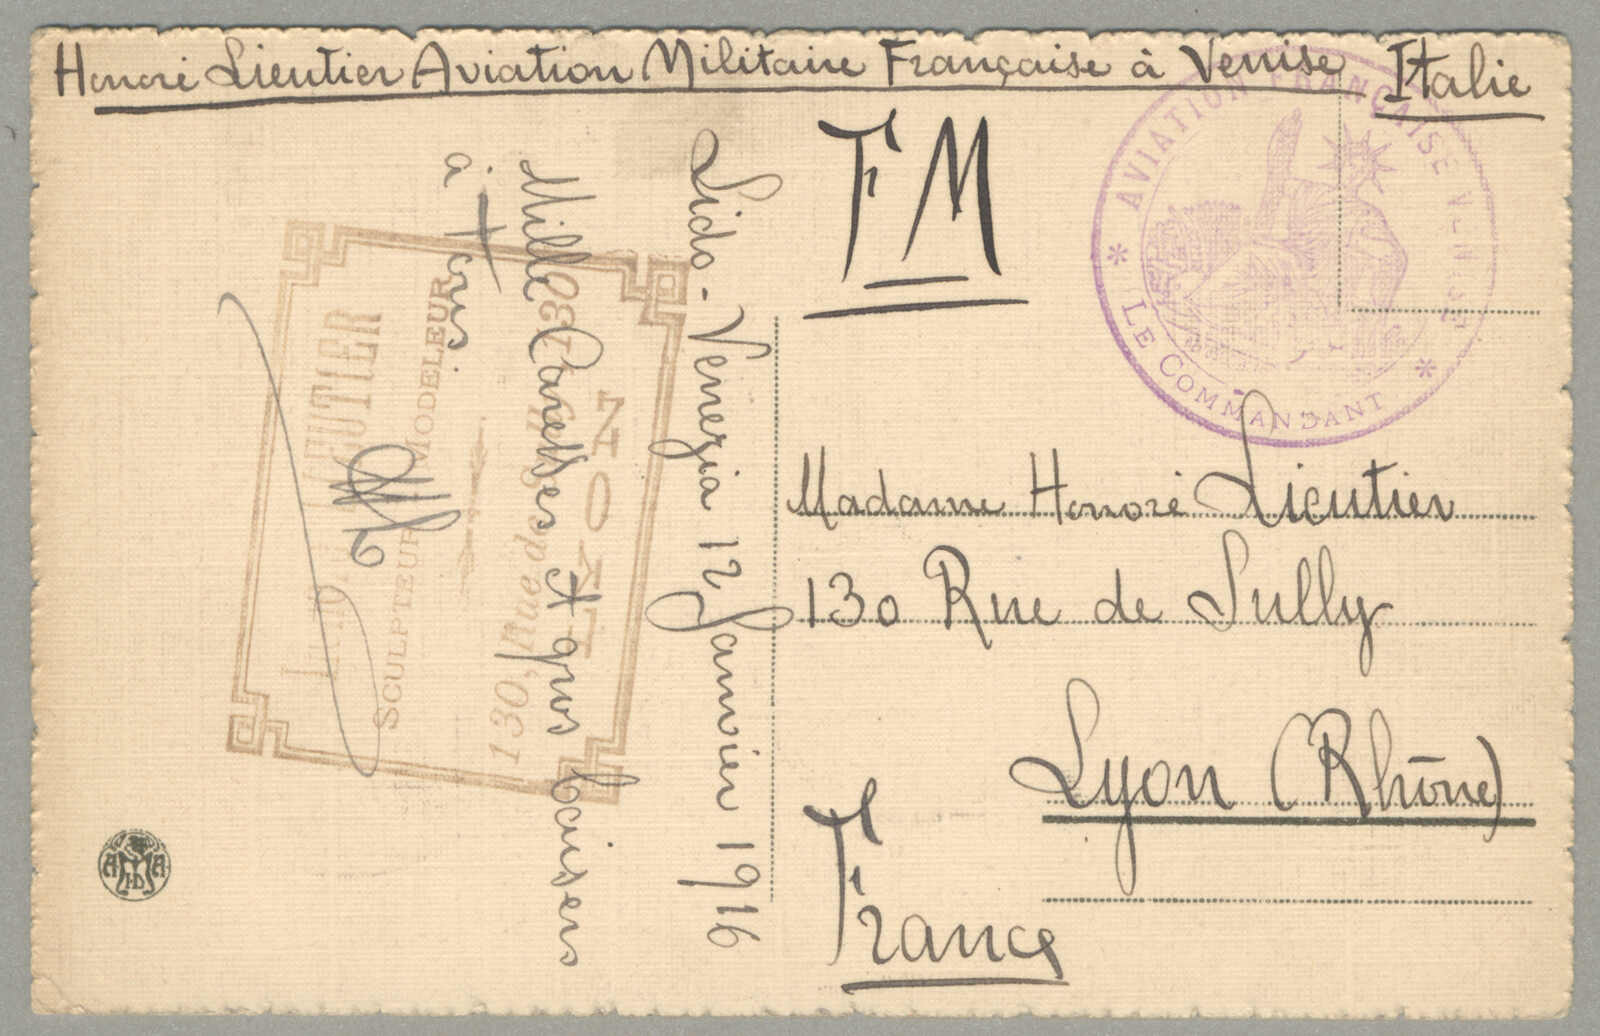 Honoré Lieutier Aviation Militaire Française à Venise Italie
FM
AVIATION FRANÇAISE VENISE
* LE COMMANDANT *
Lido-Venezia 12 Janvier 1916
Mille Caresses & gros baisers
à tous
LIEUTIER
SCULPTEUR MODELEUR
130, Rue de
LYON
Madame Honoré Lieutier
130 Rue de Sully
Lyon (Rhône)
France